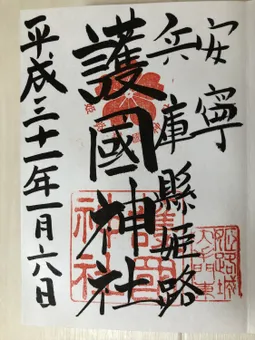 安寧
兵庫縣姫路
護國神社
平成三十一年一月六日
護國
神社